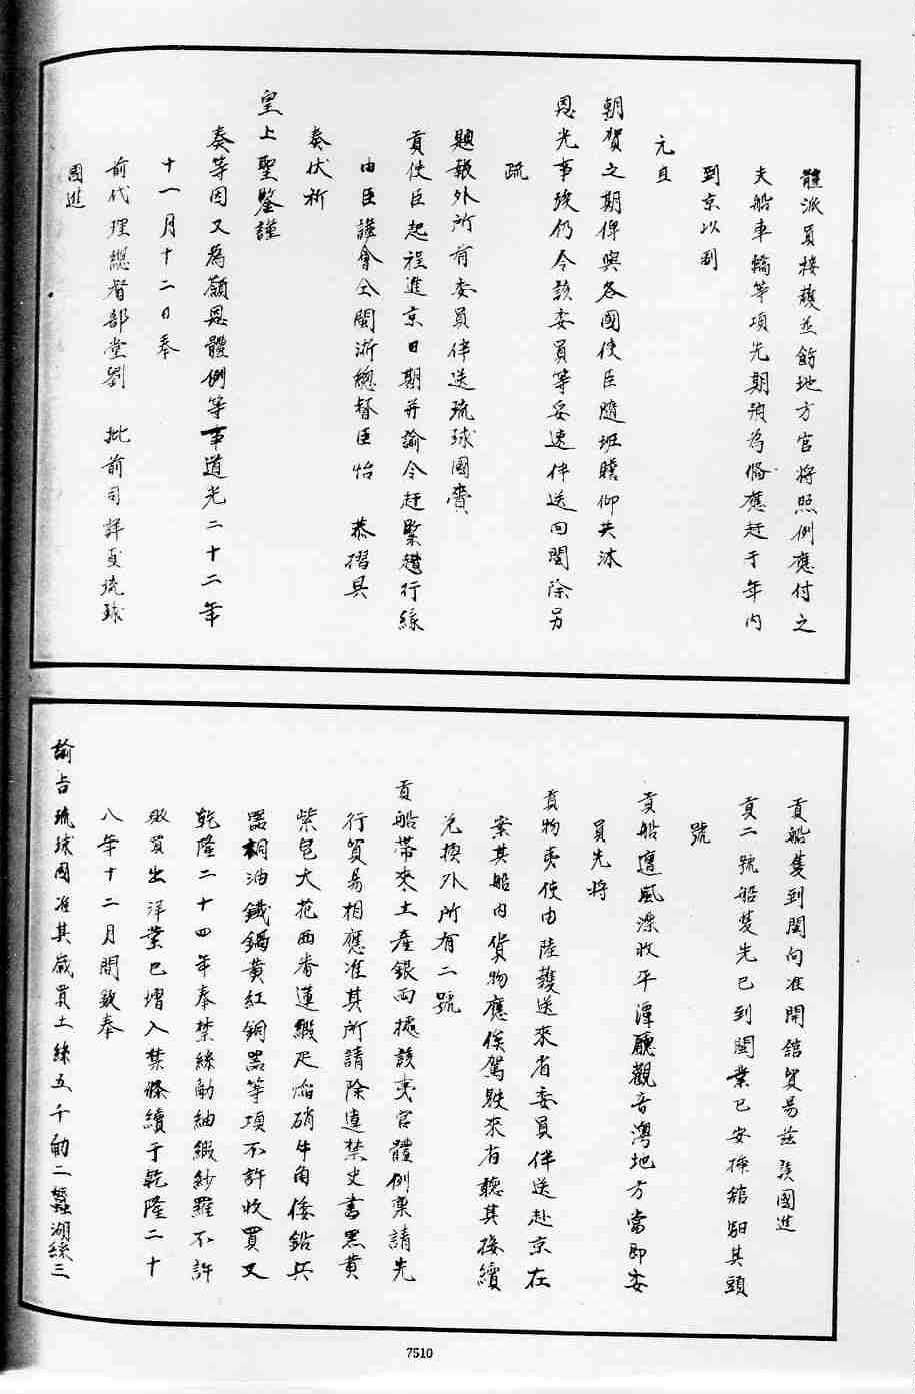 體派員接護並飭地方官將照例應付之
夫船車輛等項先期預為備應赶于年內
到京以副
元旦
朝賀之期俾與各國使臣隨班瞻仰共沐
恩光事竣仍令該委員等妥速伴送回閩除另
疏
題報外所有委員伴送琉球國賫
貢使臣起程進京日期并諭令赶緊趲行緣
由臣謹會全閩浙總督臣怡 恭摺具
奏伏祈
皇上聖鑒謹
奏等因又為籲恩體例等事道光二十二年
十一月十二日奉
前代理總督部堂劉 批前司詳覆琉球
國進
貢船隻到閩向准開舘貿易茲該國進
貢二號船隻先已到閩業已安揷舘驲其頭
號
貢船遭風漂收平潭廳觀音灣地方當即委
員先將
貢物夷使由陸護送來省委員伴送赴京在
案其船內貨物應俟駕駛來省聽其接續
兌換外所有二號
貢船帶來土產銀両據該夷官體例稟請先
行貿易相應准其所請除違禁史書黑黄
紫皂大花西番蓮緞疋焔硝牛角倭鉛兵
器桐油鐵鍋黄紅銅器等項不許收買又
乾隆二十四年奉禁絲觔紬緞紗羅不許
收買出洋業已增入禁條續于乾隆二十
八年十二月間欽奉
諭旨琉球国准其歲買土絲五千觔二蠶湖絲三
7510